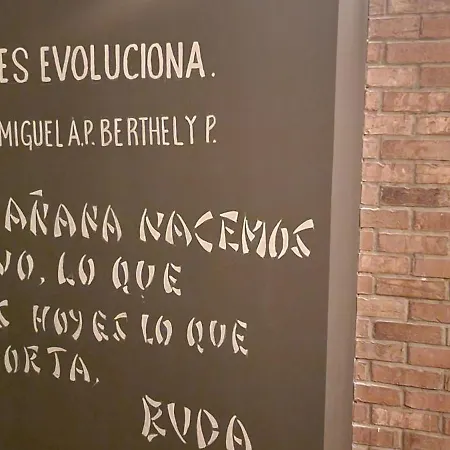 ES EVOLUCIONA.
MIGUEL A.P. BERTHELY P.
AÑANA NACEMOS
VO, LO QUE
S HOY ES LO QUE
ORTA.
BUDA